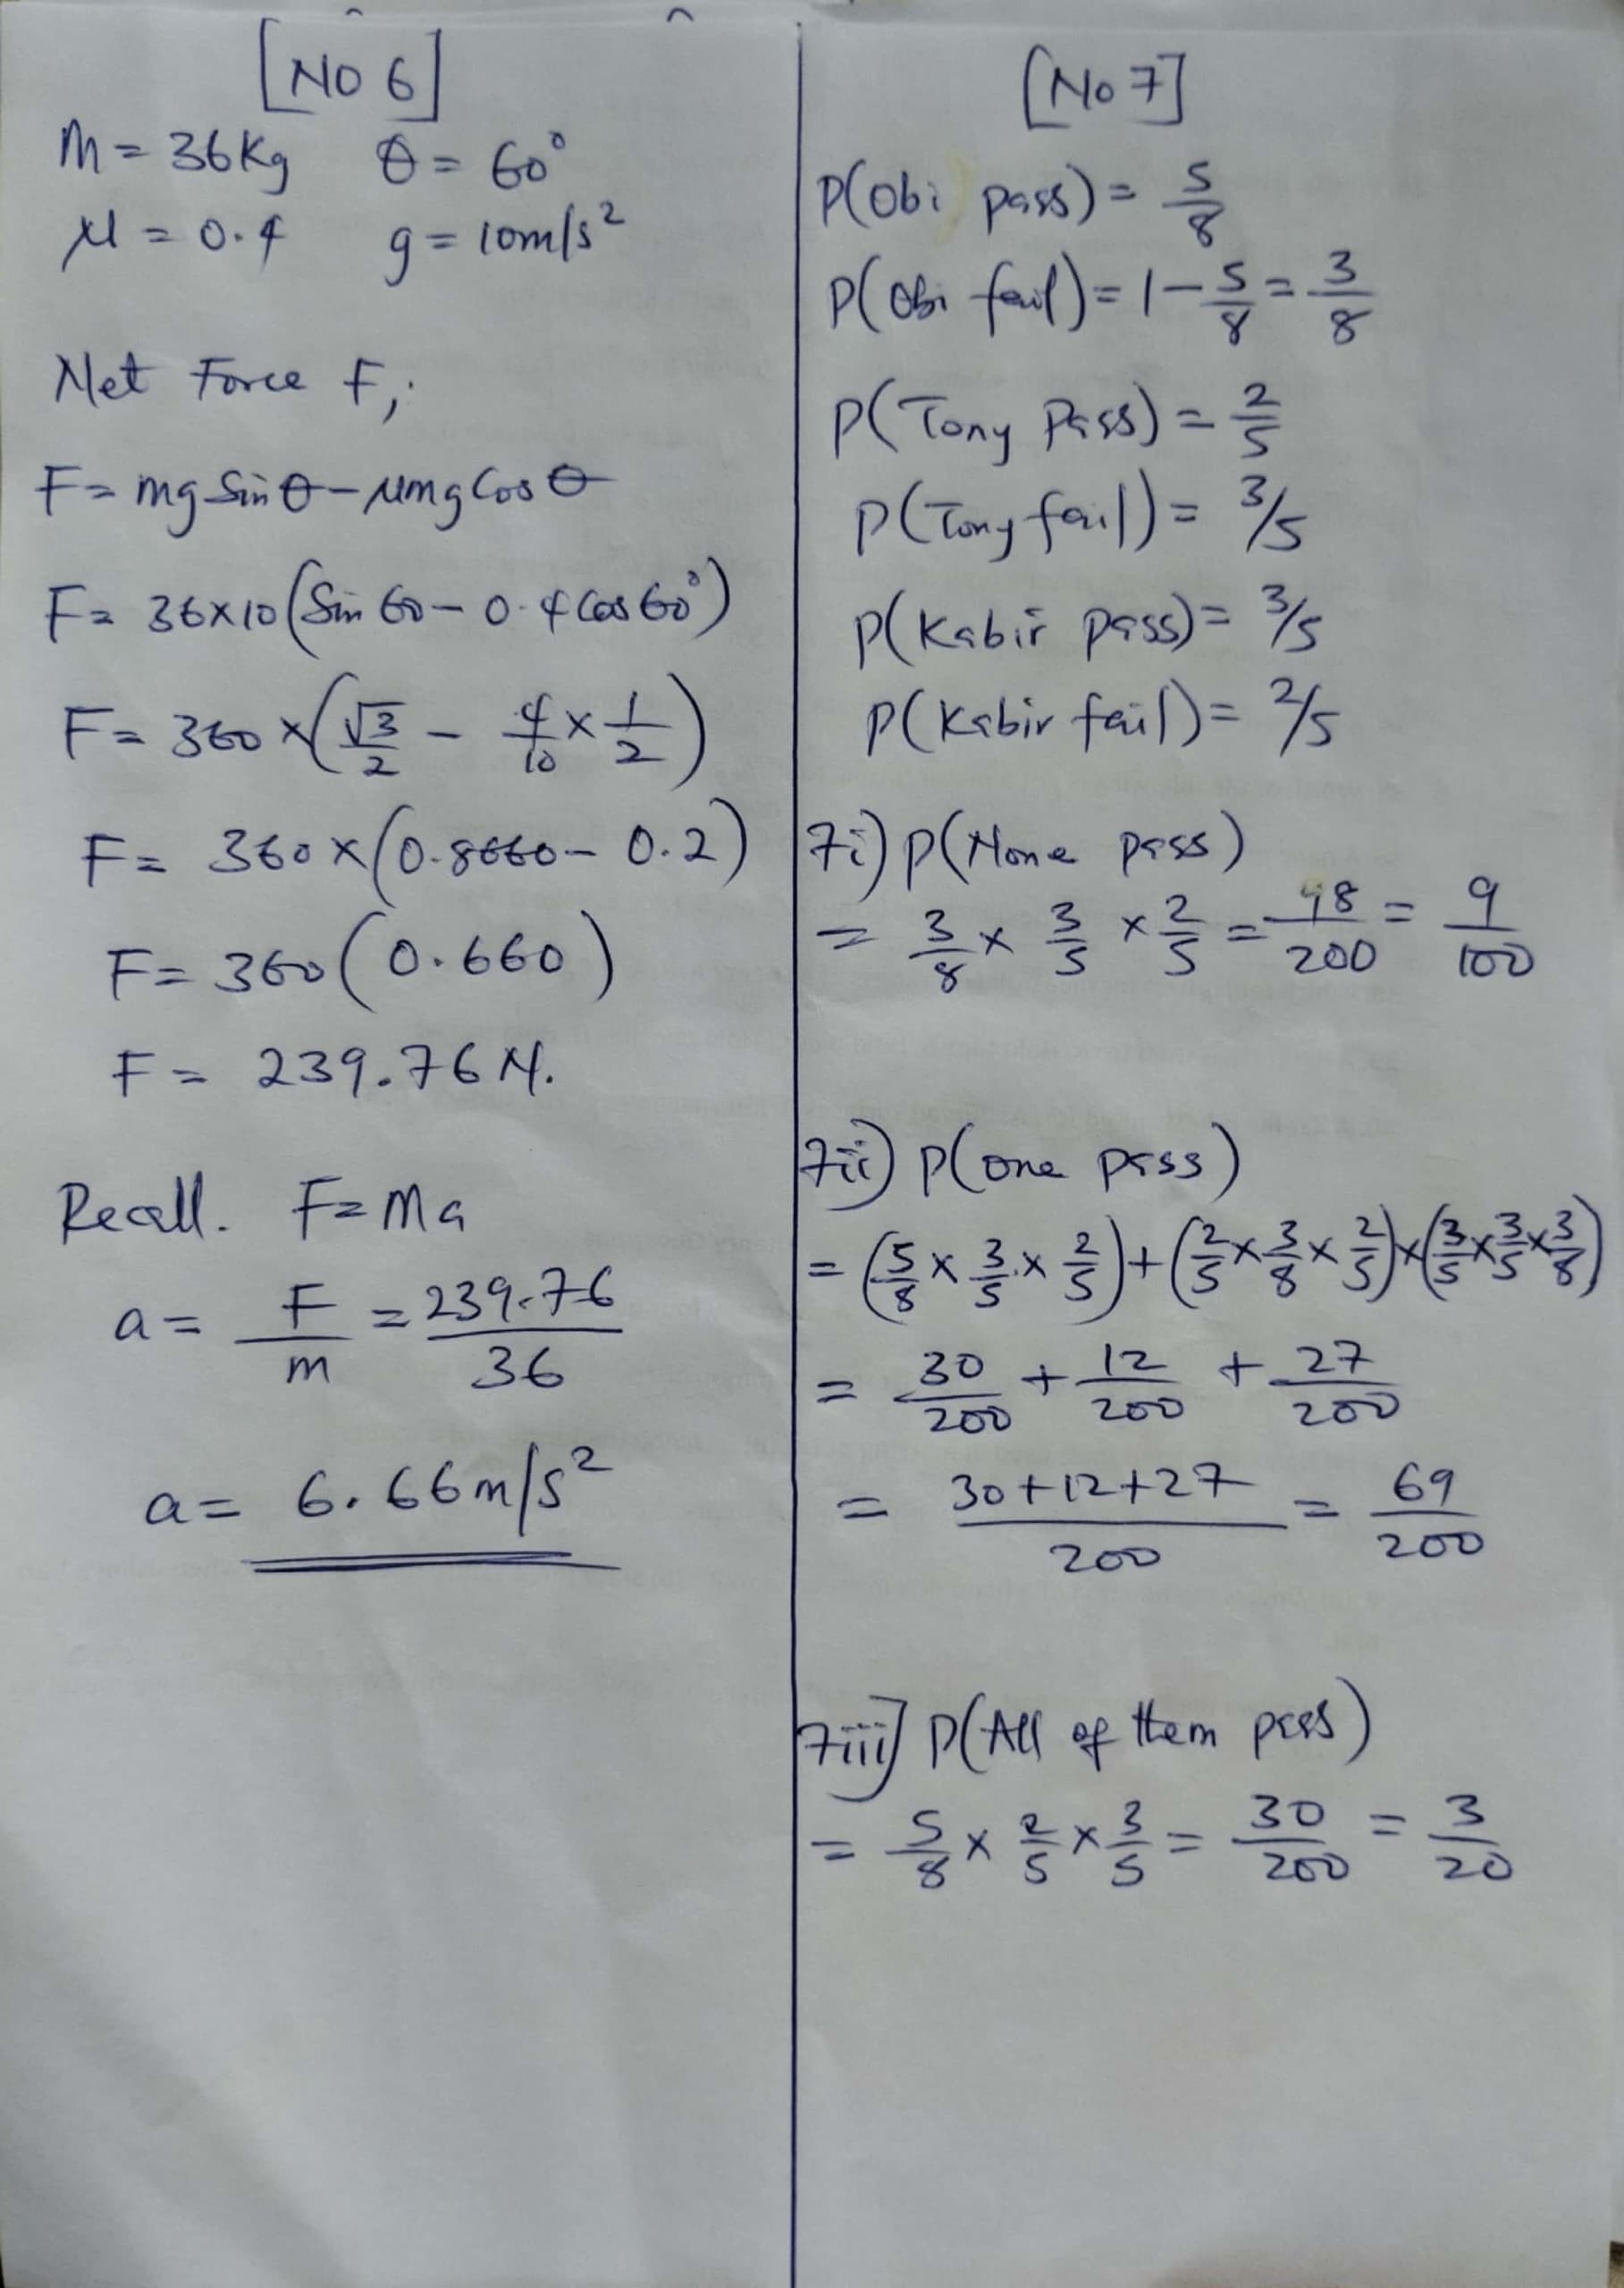 [No 6]
M = 36Kg θ = 60°
μ = 0.4 g = 10m/s²
Net Force F;
F = mg Sin θ - μmg Cos θ
F = 36x10 (Sin 60 - 0.4 Cos 60°)
F = 360 x (√3/2 - 4/10 x 1/2)
F = 360 x (0.8660 - 0.2)
F = 360 (0.660)
F = 239.76 N.
Recall. F = Ma
a = F/m = 239.76/36
a = 6.66m/s²
[No 7]
P(Obi pass) = 5/8
P(Obi fail) = 1 - 5/8 = 3/8
P(Tony Pass) = 2/5
P(Tony fail) = 3/5
P(Kabir pass) = 3/5
P(Kabir fail) = 2/5
7i) P(None pass)
= 3/8 x 3/5 x 2/5 = 18/200 = 9/100
7ii) P(one pass)
= (5/8 x 3/5 x 2/5) + (2/5 x 3/8 x 2/5) x (3/5 x 3/5 x 3/8)
= 30/200 + 12/200 + 27/200
= 30+12+27/200 = 69/200
7iii] P(All of them pass)
= 5/8 x 2/5 x 3/5 = 30/200 = 3/20